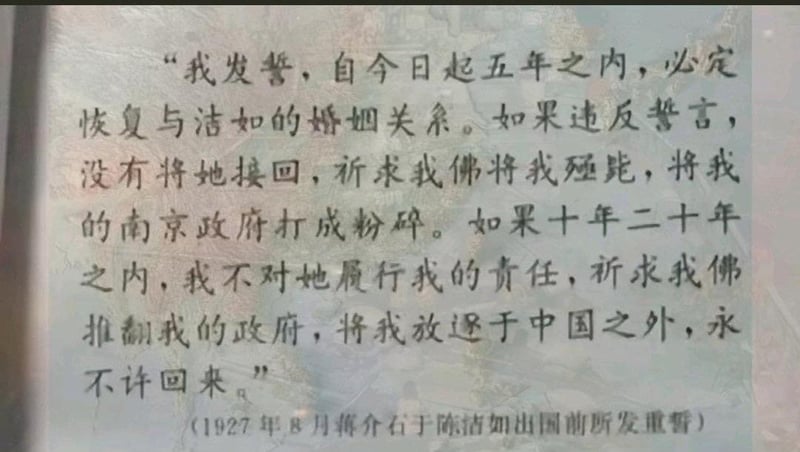 “我发誓，自今日起五年之内，必定
恢复与洁如的婚姻关系。如果违反誓言，
没有将她接回，祈求我佛将我殛毙，将我
的南京政府打成粉碎。如果十年二十年
之内，我不对她履行我的责任，祈求我佛
推翻我的政府，将我放逐于中国之外，永
不许回来。”
(1927年8月蒋介石于陈洁如出国前所发重誓)